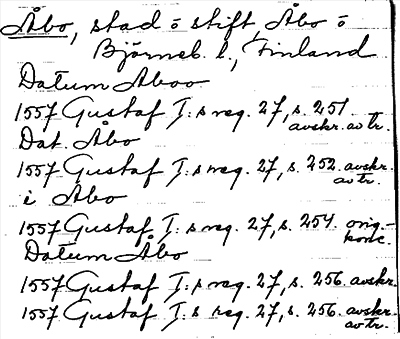 Åbo, stad o stift, Åbo o
Björneb. l., Finland
Datum Aboo
1557 Gustaf I:s reg. 27, s. 251
avskr. av tr.
Dat. Åbo
1557 Gustaf I:s reg. 27, s. 252. avskr.
av tr.
i Åbo
1557 Gustaf I:s reg. 27, s. 254. orig.-
konc.
Datum Åbo
1557 Gustaf I:s reg. 27, s. 256. avskr.
1557 Gustaf I:s reg. 27, s. 256. avskr.
av tr.